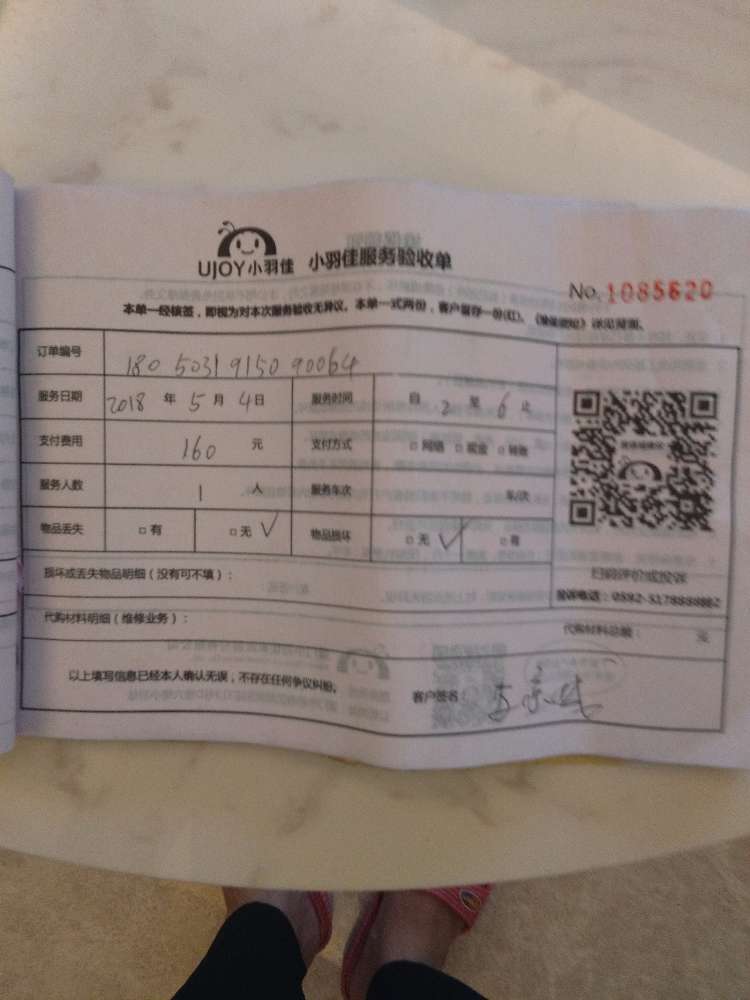 UJOY小羽佳 小羽佳服务验收单
No. 1085620
本单一经核签，即视为对本次服务验收无异议。本单一式两份，客户留存一份(红)。
订单编号 180503191509 0064
服务日期 2018 年 5 月 4 日 服务时间 自 2 至 6 止
支付费用 160 元 支付方式 □网络 □现金 □转账
服务人数 1 人 服务车次 车/次
物品丢失 □有 □无 ✓ 物品损坏 □无 ✓ □有
损坏或丢失物品明细（没有可不填）：
扫码评价或投诉
投诉电话：0592-5178888
代购材料明细（维修业务）： 代购材料总额： 元
以上填写信息已经本人确认无误，不存在任何争议纠纷。 客户签名：